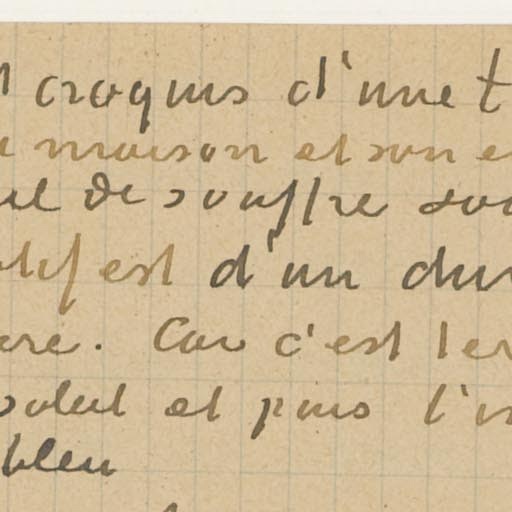 croquis d'une t
maison et son e
de souffre sou
est d'un dur
. Car c'est ter
soleil et puis l'in
bleu